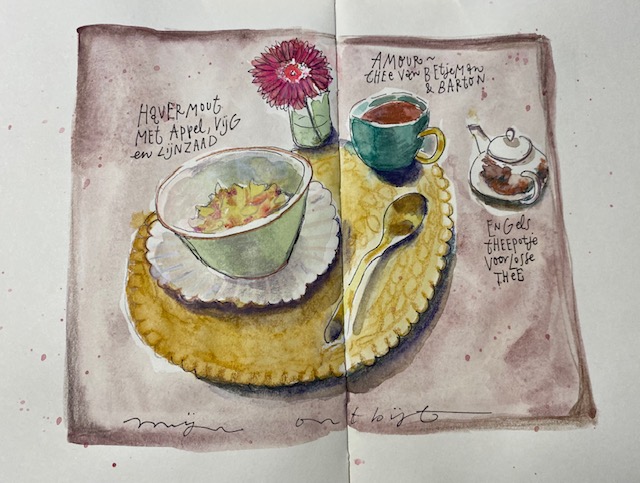 HAVERMOUT
MET APPEL, VIJG
en LIJNZAAD
AMOUR~
THEE VAN BETJEMAN
& BARTON.
ENGELS
THEEPOTJE
VOOR LOSSE
THEE
mijn ontbijt